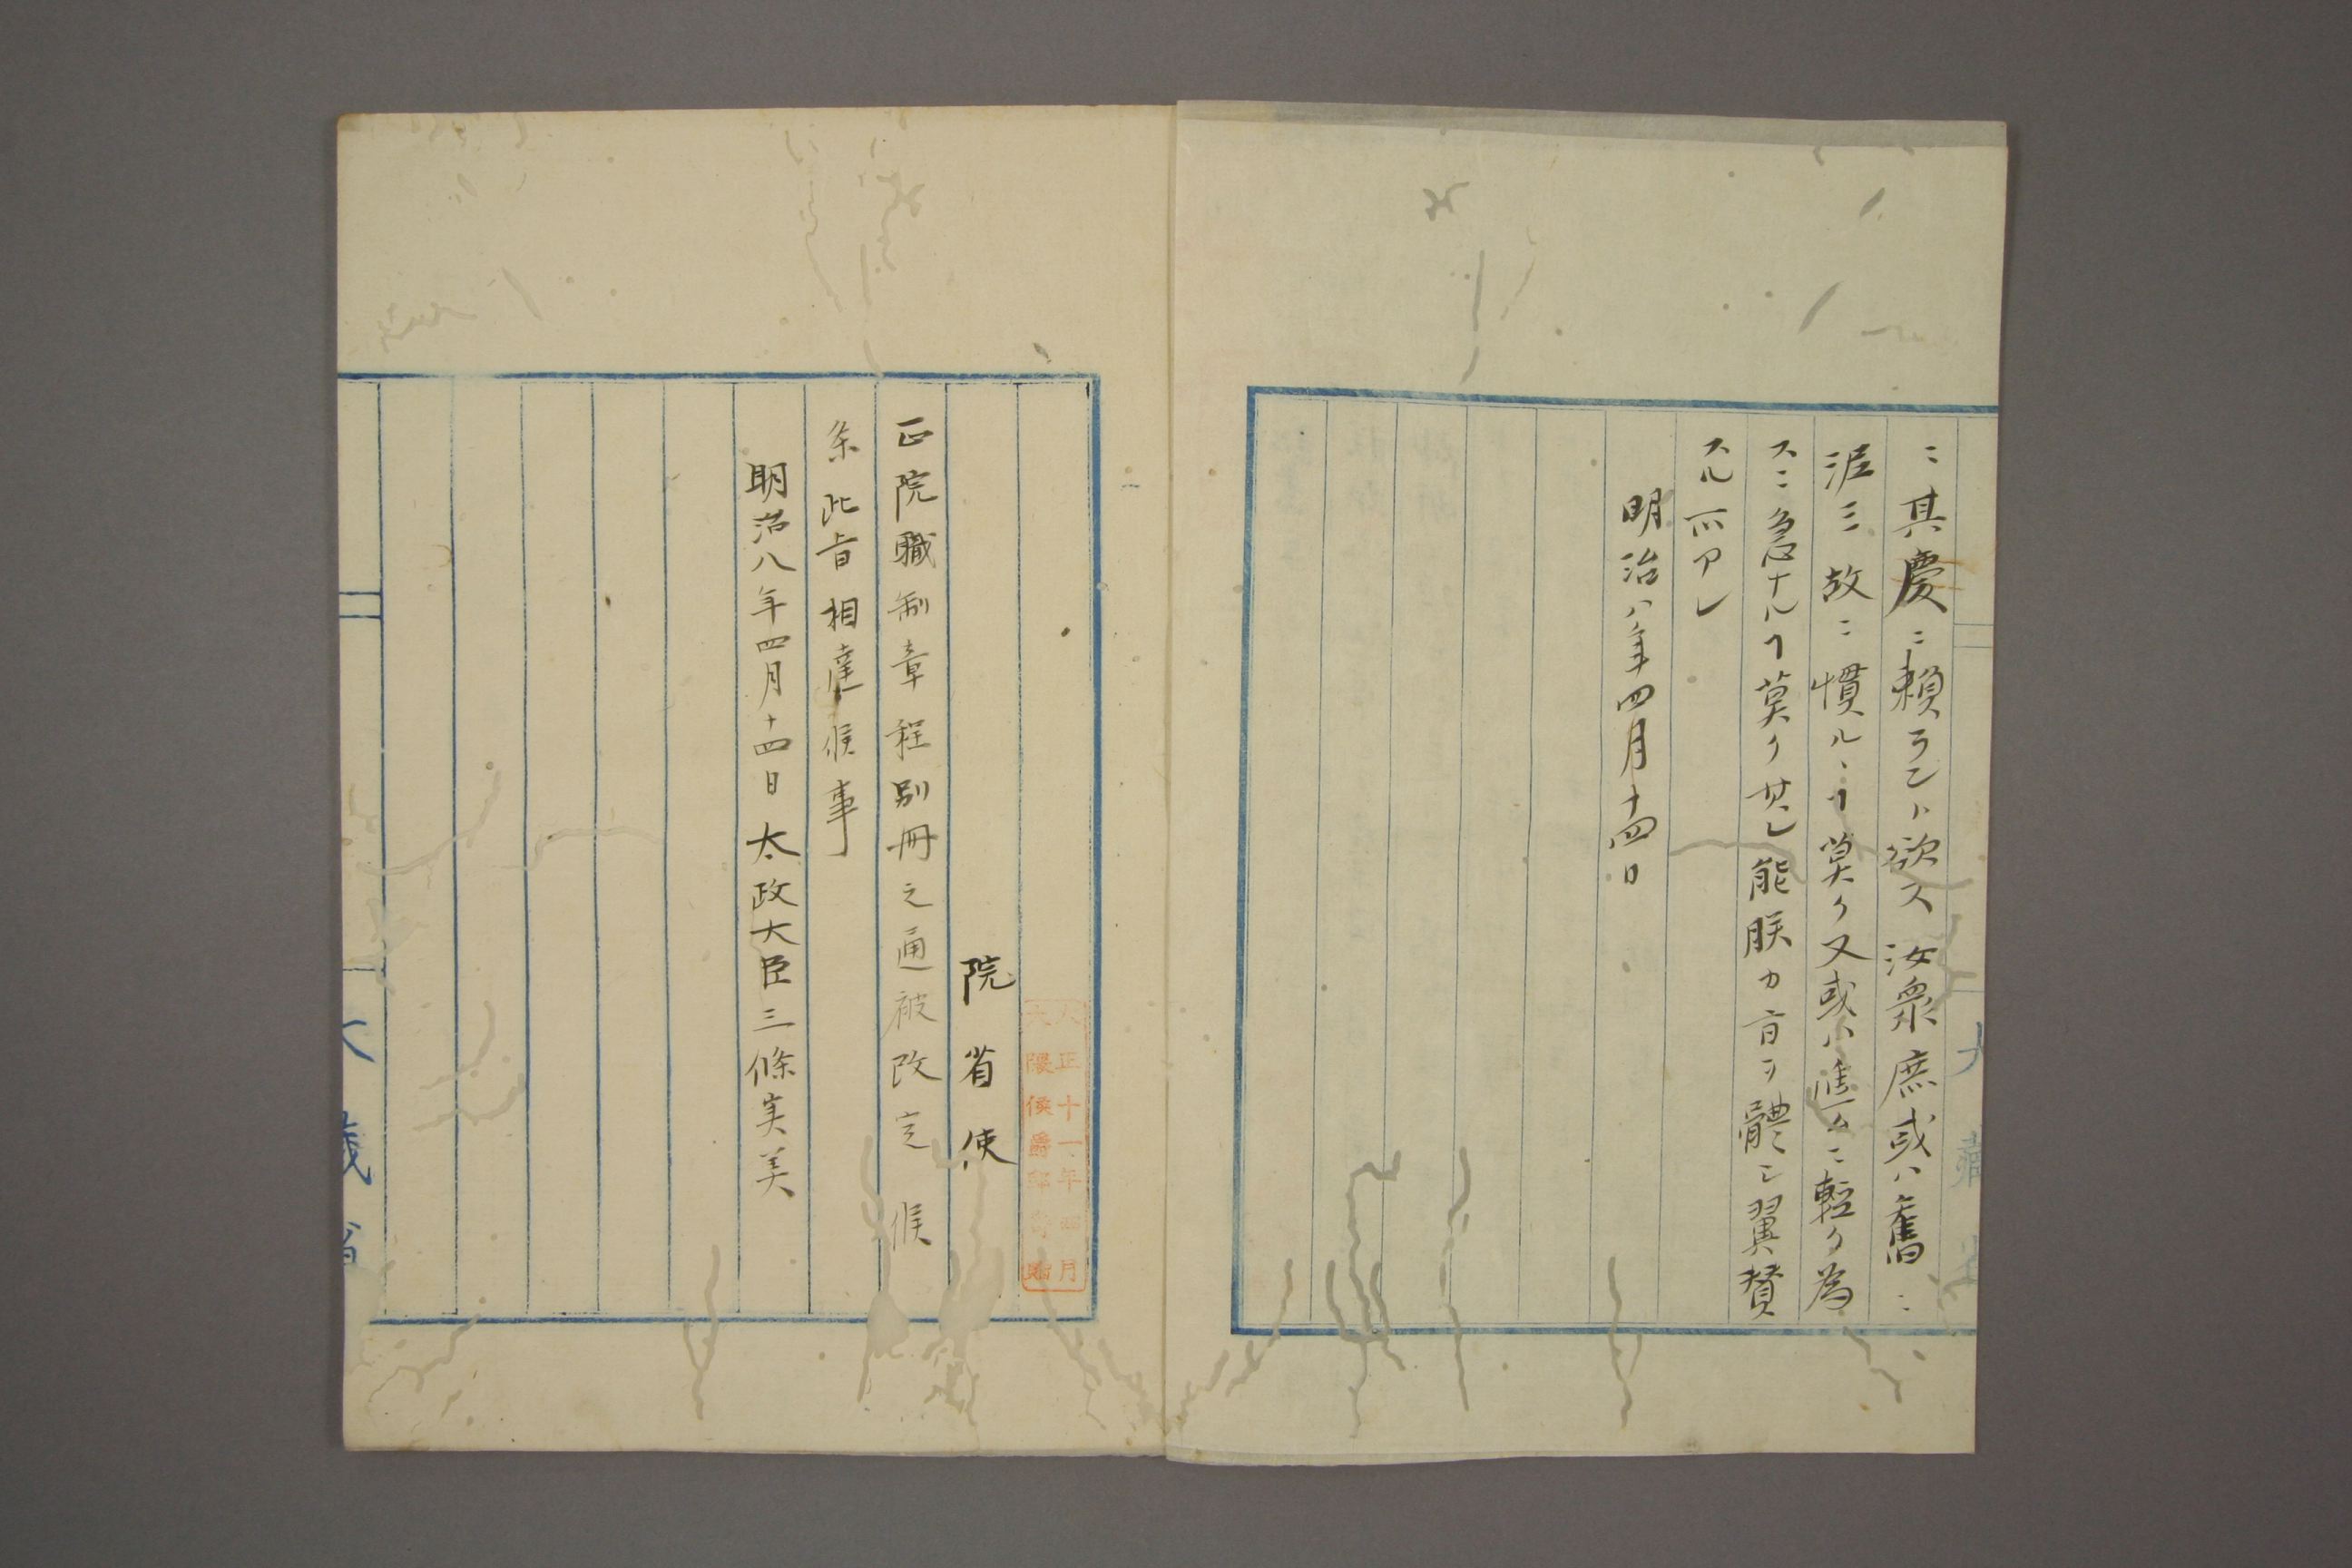 ニ其慶ニ頼ラント欲ス汝衆庶或ハ舊ニ
泥ミ故ニ慣ルヽヿ莫ク又或ハ進ムニ軽ク為
スニ急ナルヿ莫ク其レ能朕カ旨ヲ體シ翼賛
スル所アレ
明治八年四月十四日
大正十一年四月
大隈侯爵邸寄贈
院省使
正院職制章程別冊之通被改定候
条此旨相達候事
明治八年四月十四日太政大臣三條実美
大蔵省